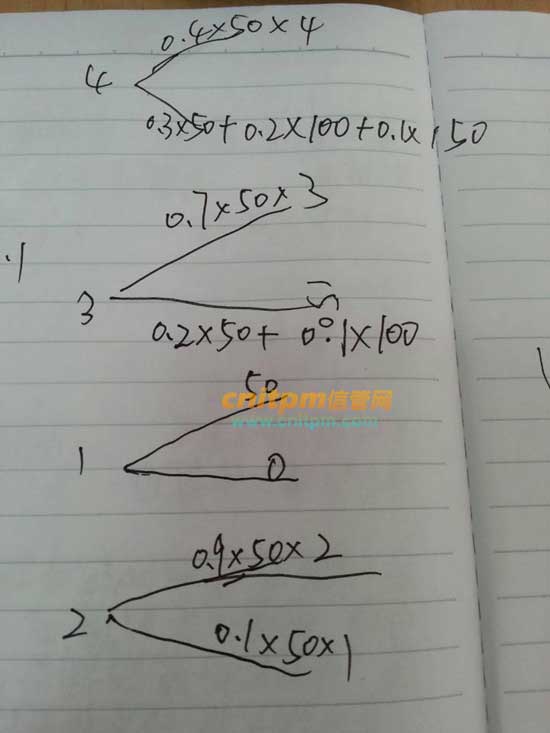 0.4×50×4
4
0.3×50+0.2×100+0.1×150
0.7×50×3
.1
3
0.2×50+0.1×100
50
cnitpm信管网
www.cnitpm.com
1
0
0.9×50×2
2
0.1×50×1